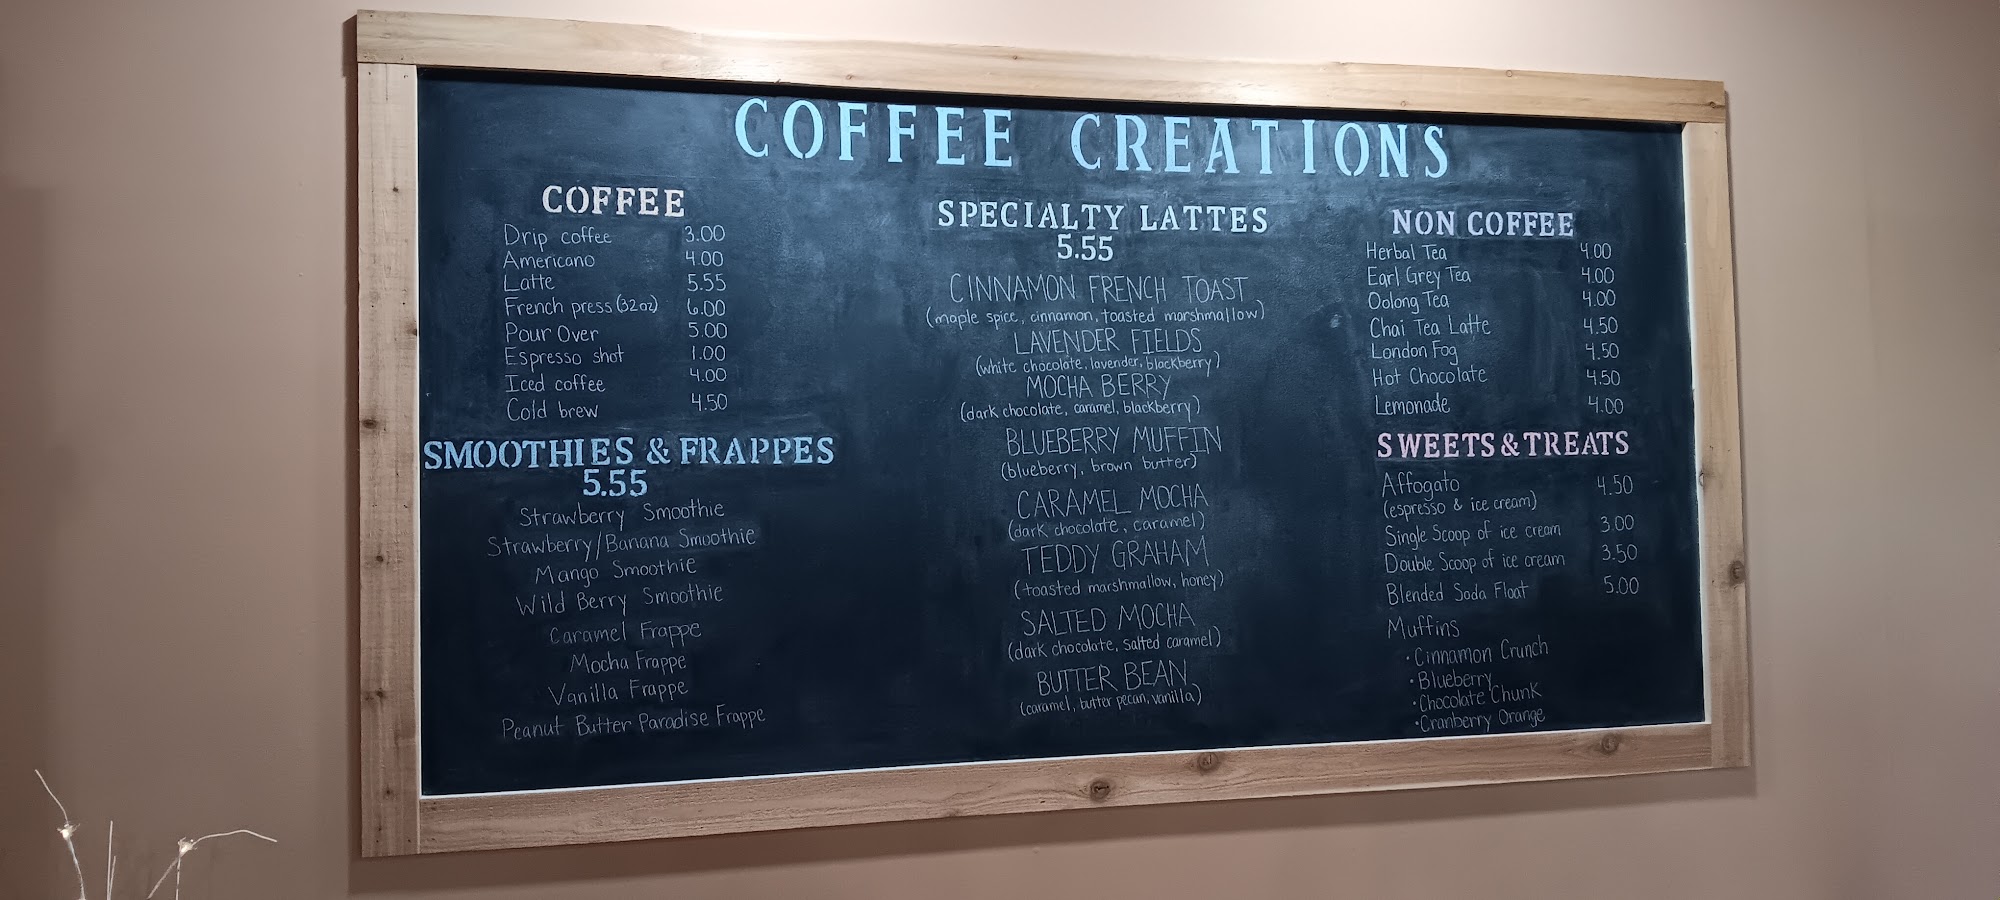 COFFEE CREATIONS
COFFEE
Drip coffee 3.00
Americano 4.00
Latte 5.55
French press (32oz) 6.00
Pour Over 5.00
Espresso shot 1.00
Iced coffee 4.00
Cold brew 4.50
SMOOTHIES & FRAPPES
5.55
Strawberry Smoothie
Strawberry/Banana Smoothie
Mango Smoothie
Wild Berry Smoothie
Caramel Frappe
Mocha Frappe
Vanilla Frappe
Peanut Butter Paradise Frappe
SPECIALTY LATTES
5.55
CINNAMON FRENCH TOAST
(maple spice, cinnamon, toasted marshmallow)
LAVENDER FIELDS
(white chocolate, lavender, blackberry)
MOCHA BERRY
(dark chocolate, caramel, blackberry)
BLUEBERRY MUFFIN
(blueberry, brown butter)
CARAMEL MOCHA
(dark chocolate, caramel)
TEDDY GRAHAM
(toasted marshmallow, honey)
SALTED MOCHA
(dark chocolate, salted caramel)
BUTTER BEAN
(caramel, butter pecan, vanilla)
NON COFFEE
Herbal Tea 4.00
Earl Grey Tea 4.00
Oolong Tea 4.00
Chai Tea Latte 4.50
London Fog 4.50
Hot Chocolate 4.50
Lemonade 4.00
SWEETS & TREATS
Affogato 4.50
(espresso & ice cream)
Single Scoop of ice cream 3.00
Double Scoop of ice cream 3.50
Blended Soda Float 5.00
Muffins
• Cinnamon Crunch
• Blueberry
• Chocolate Chunk
• Cranberry Orange